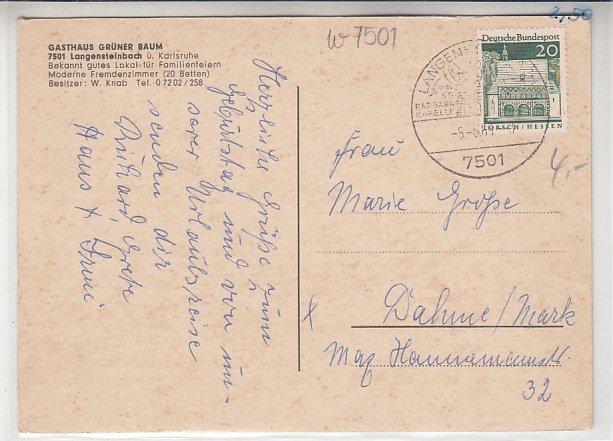 GASTHAUS GRÜNER BAUM
7501 Langensteinbach ü. Karlsruhe
Bekannt gutes Lokal für Familienfeiern
Moderne Fremdenzimmer (20 Betten)
Besitzer: W. Knab Tel. 07202/258
Herzliche Grüße zum
Geburtstag und von un-
serer Urlaubsreise
senden dir
Richard, Grete
Hans +
w-7501
2,50
Deutsche Bundespost
20
LORSCH/HESSEN
LANGENS
7501
4,-
Frau
Marie Große
x
Dahme/Mark
Max Hannemannstr.
32